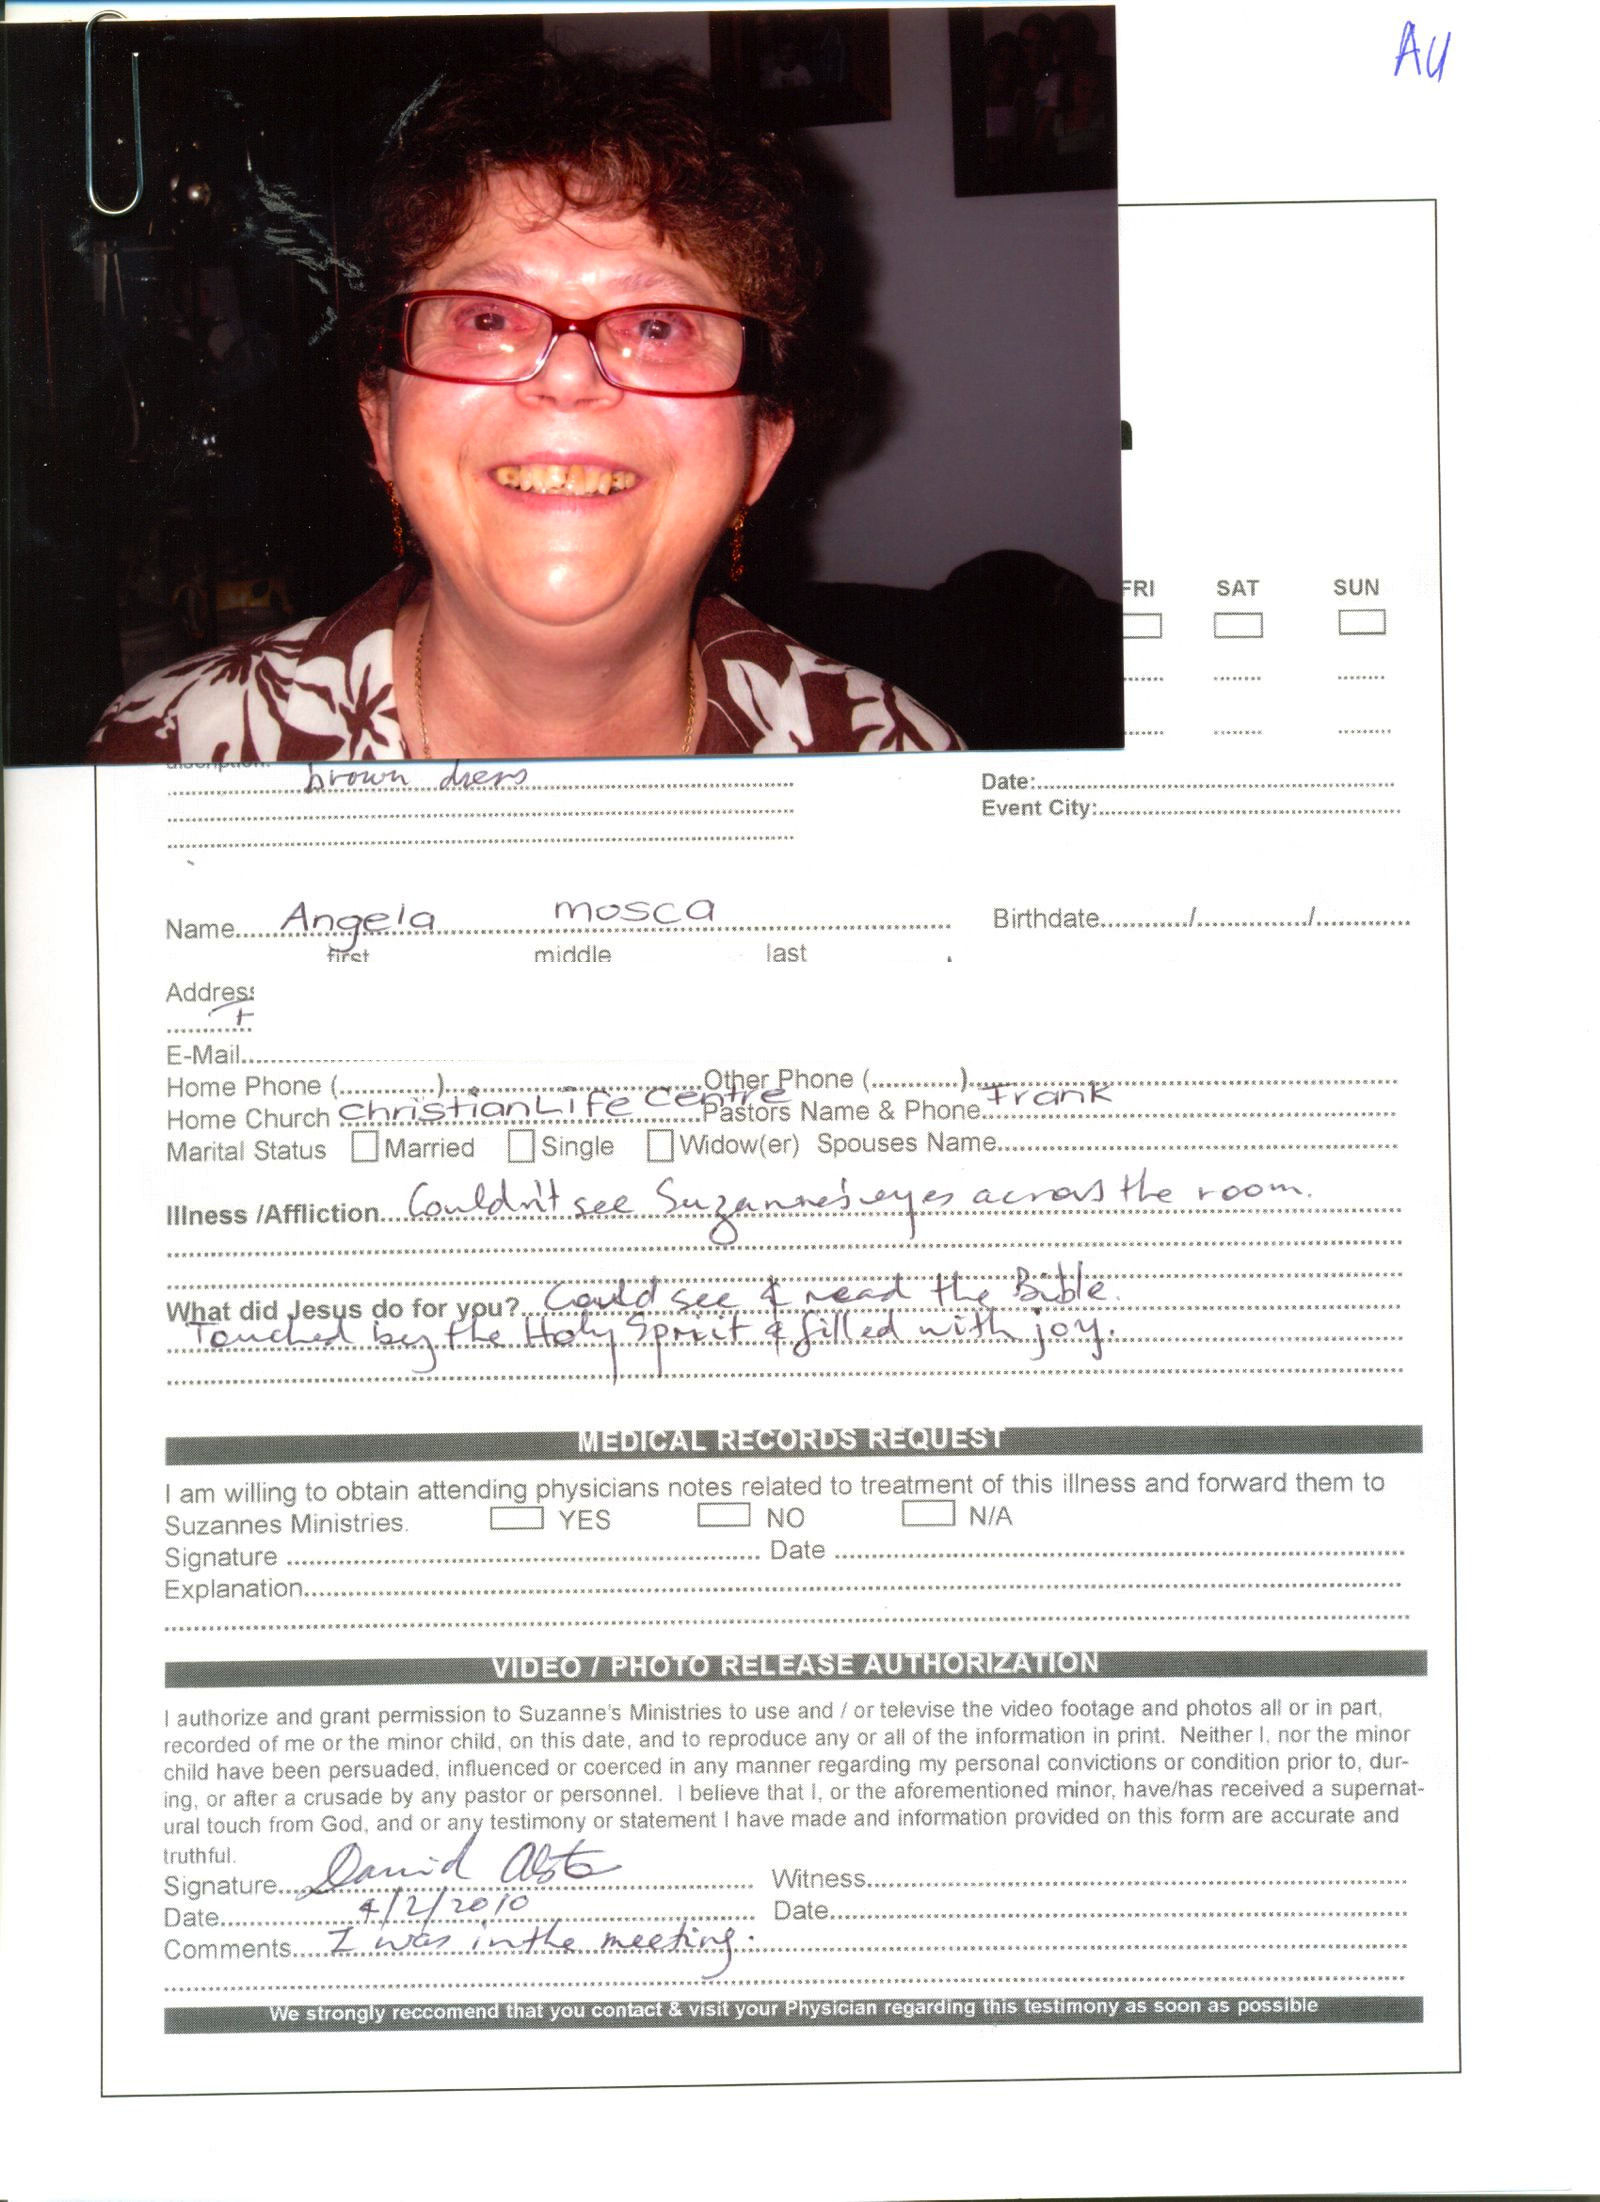 AU
n
FRI SAT SUN
brown dress
Date:
Event City:
Name Angela mosca Birthdate / /
first middle last
Address
E-Mail
Home Phone ( ) Other Phone ( )
Home Church ChristianLife Centre Pastors Name & Phone Frank
Marital Status Married Single Widow(er) Spouses Name
Illness /Affliction Couldn't see Suzanne's eyes across the room.
What did Jesus do for you? Could see & read the Bible.
Touched by the Holy Spirit & filled with joy.
MEDICAL RECORDS REQUEST
I am willing to obtain attending physicians notes related to treatment of this illness and forward them to
Suzannes Ministries. YES NO N/A
Signature Date
Explanation
VIDEO / PHOTO RELEASE AUTHORIZATION
I authorize and grant permission to Suzanne's Ministries to use and / or televise the video footage and photos all or in part,
recorded of me or the minor child, on this date, and to reproduce any or all of the information in print. Neither I, nor the minor
child have been persuaded, influenced or coerced in any manner regarding my personal convictions or condition prior to, dur-
ing, or after a crusade by any pastor or personnel. I believe that I, or the aforementioned minor, have/has received a supernat-
ural touch from God, and or any testimony or statement I have made and information provided on this form are accurate and
truthful.
Signature David Witness
Date 4/2/2010 Date
Comments I was in the meeting.
We strongly reccomend that you contact & visit your Physician regarding this testimony as soon as possible